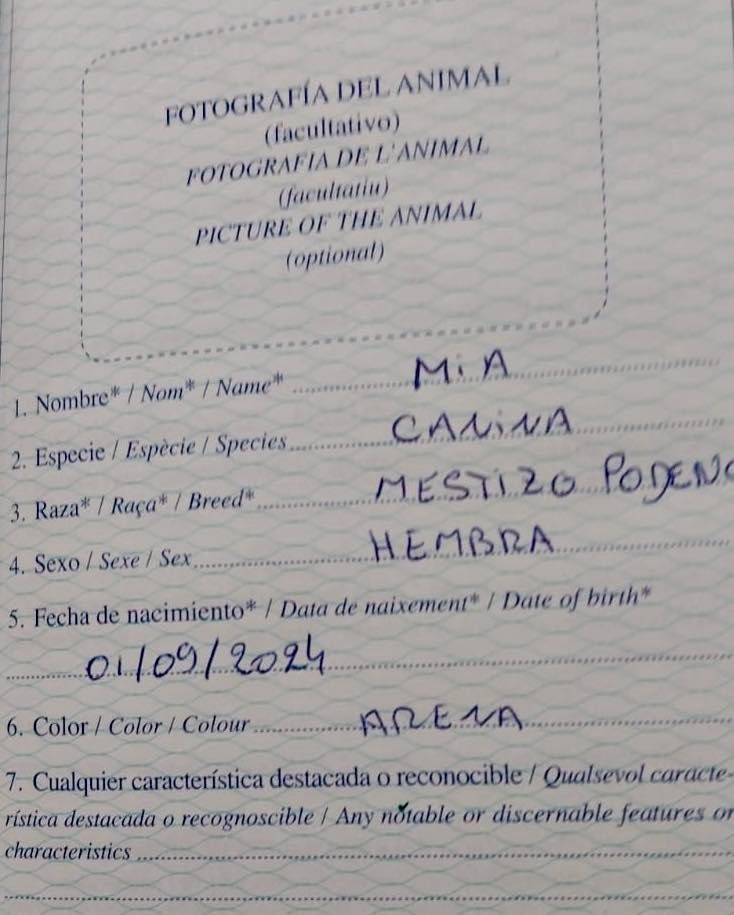 FOTOGRAFÍA DEL ANIMAL
(facultativo)
FOTOGRAFIA DE L'ANIMAL
(facultatiu)
PICTURE OF THE ANIMAL
(optional)
1. Nombre* / Nom* / Name* MiA
2. Especie / Espècie / Species CANiNA
3. Raza* / Raça* / Breed* MESTIZO PODENC
4. Sexo / Sexe / Sex HEMBRA
5. Fecha de nacimiento* / Data de naixement* / Date of birth*
01/09/2024
6. Color / Color / Colour ARENA
7. Cualquier característica destacada o reconocible / Qualsevol caracte-
rística destacada o recognoscible / Any notable or discernable features or
characteristics